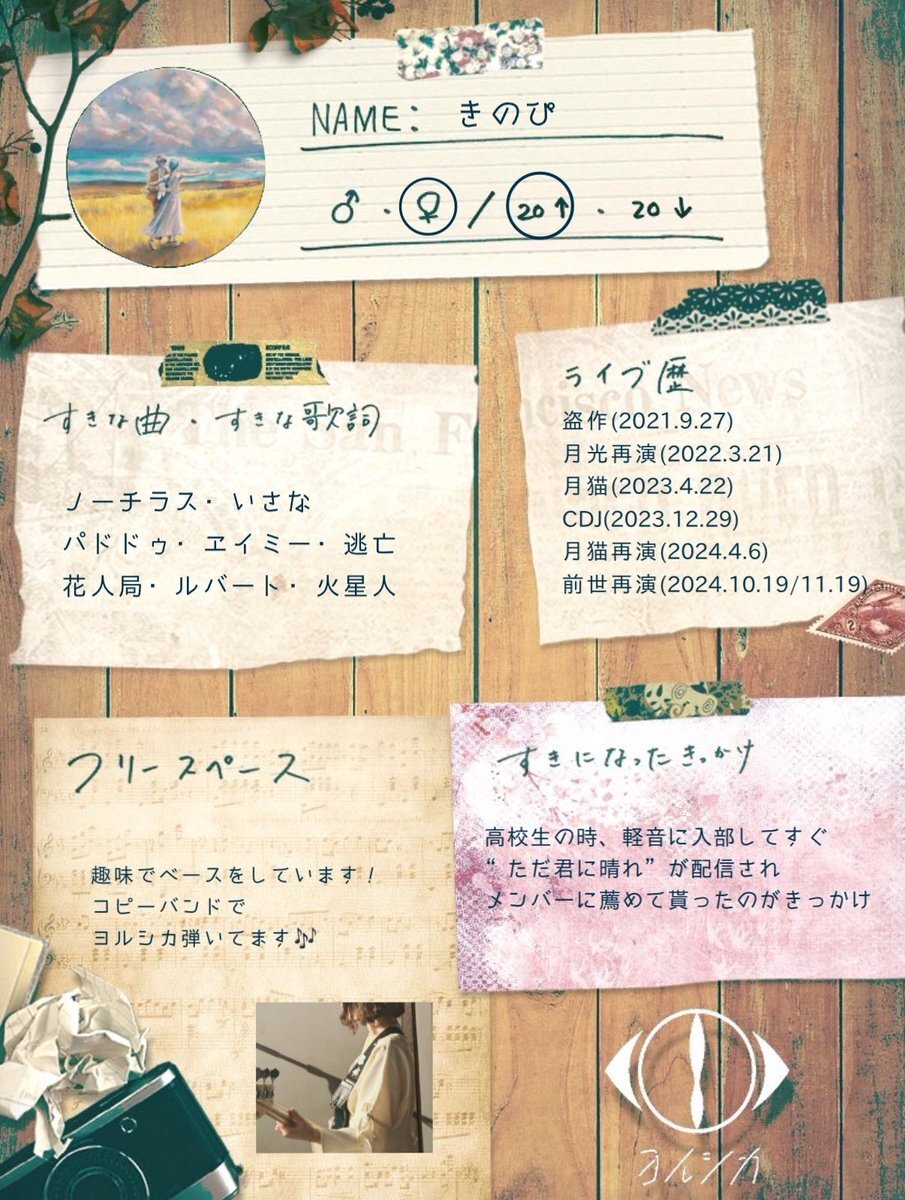 NAME: きのぴ
♂・♀/20↑・20↓
すきな曲・すきな歌詞
ノーチラス・いさな
パドドゥ・ヱイミー・逃亡
花人局・ルバート・火星人
ライブ歴
盗作(2021.9.27)
月光再演(2022.3.21)
月猫(2023.4.22)
CDJ(2023.12.29)
月猫再演(2024.4.6)
前世再演(2024.10.19/11.19)
フリースペース
趣味でベースをしています!
コピーバンドで
ヨルシカ弾いてます🎶
すきになったきっかけ
高校生の時、軽音に入部してすぐ
“ただ君に晴れ”が配信され
メンバーに薦めて貰ったのがきっかけ
ヨルシカ